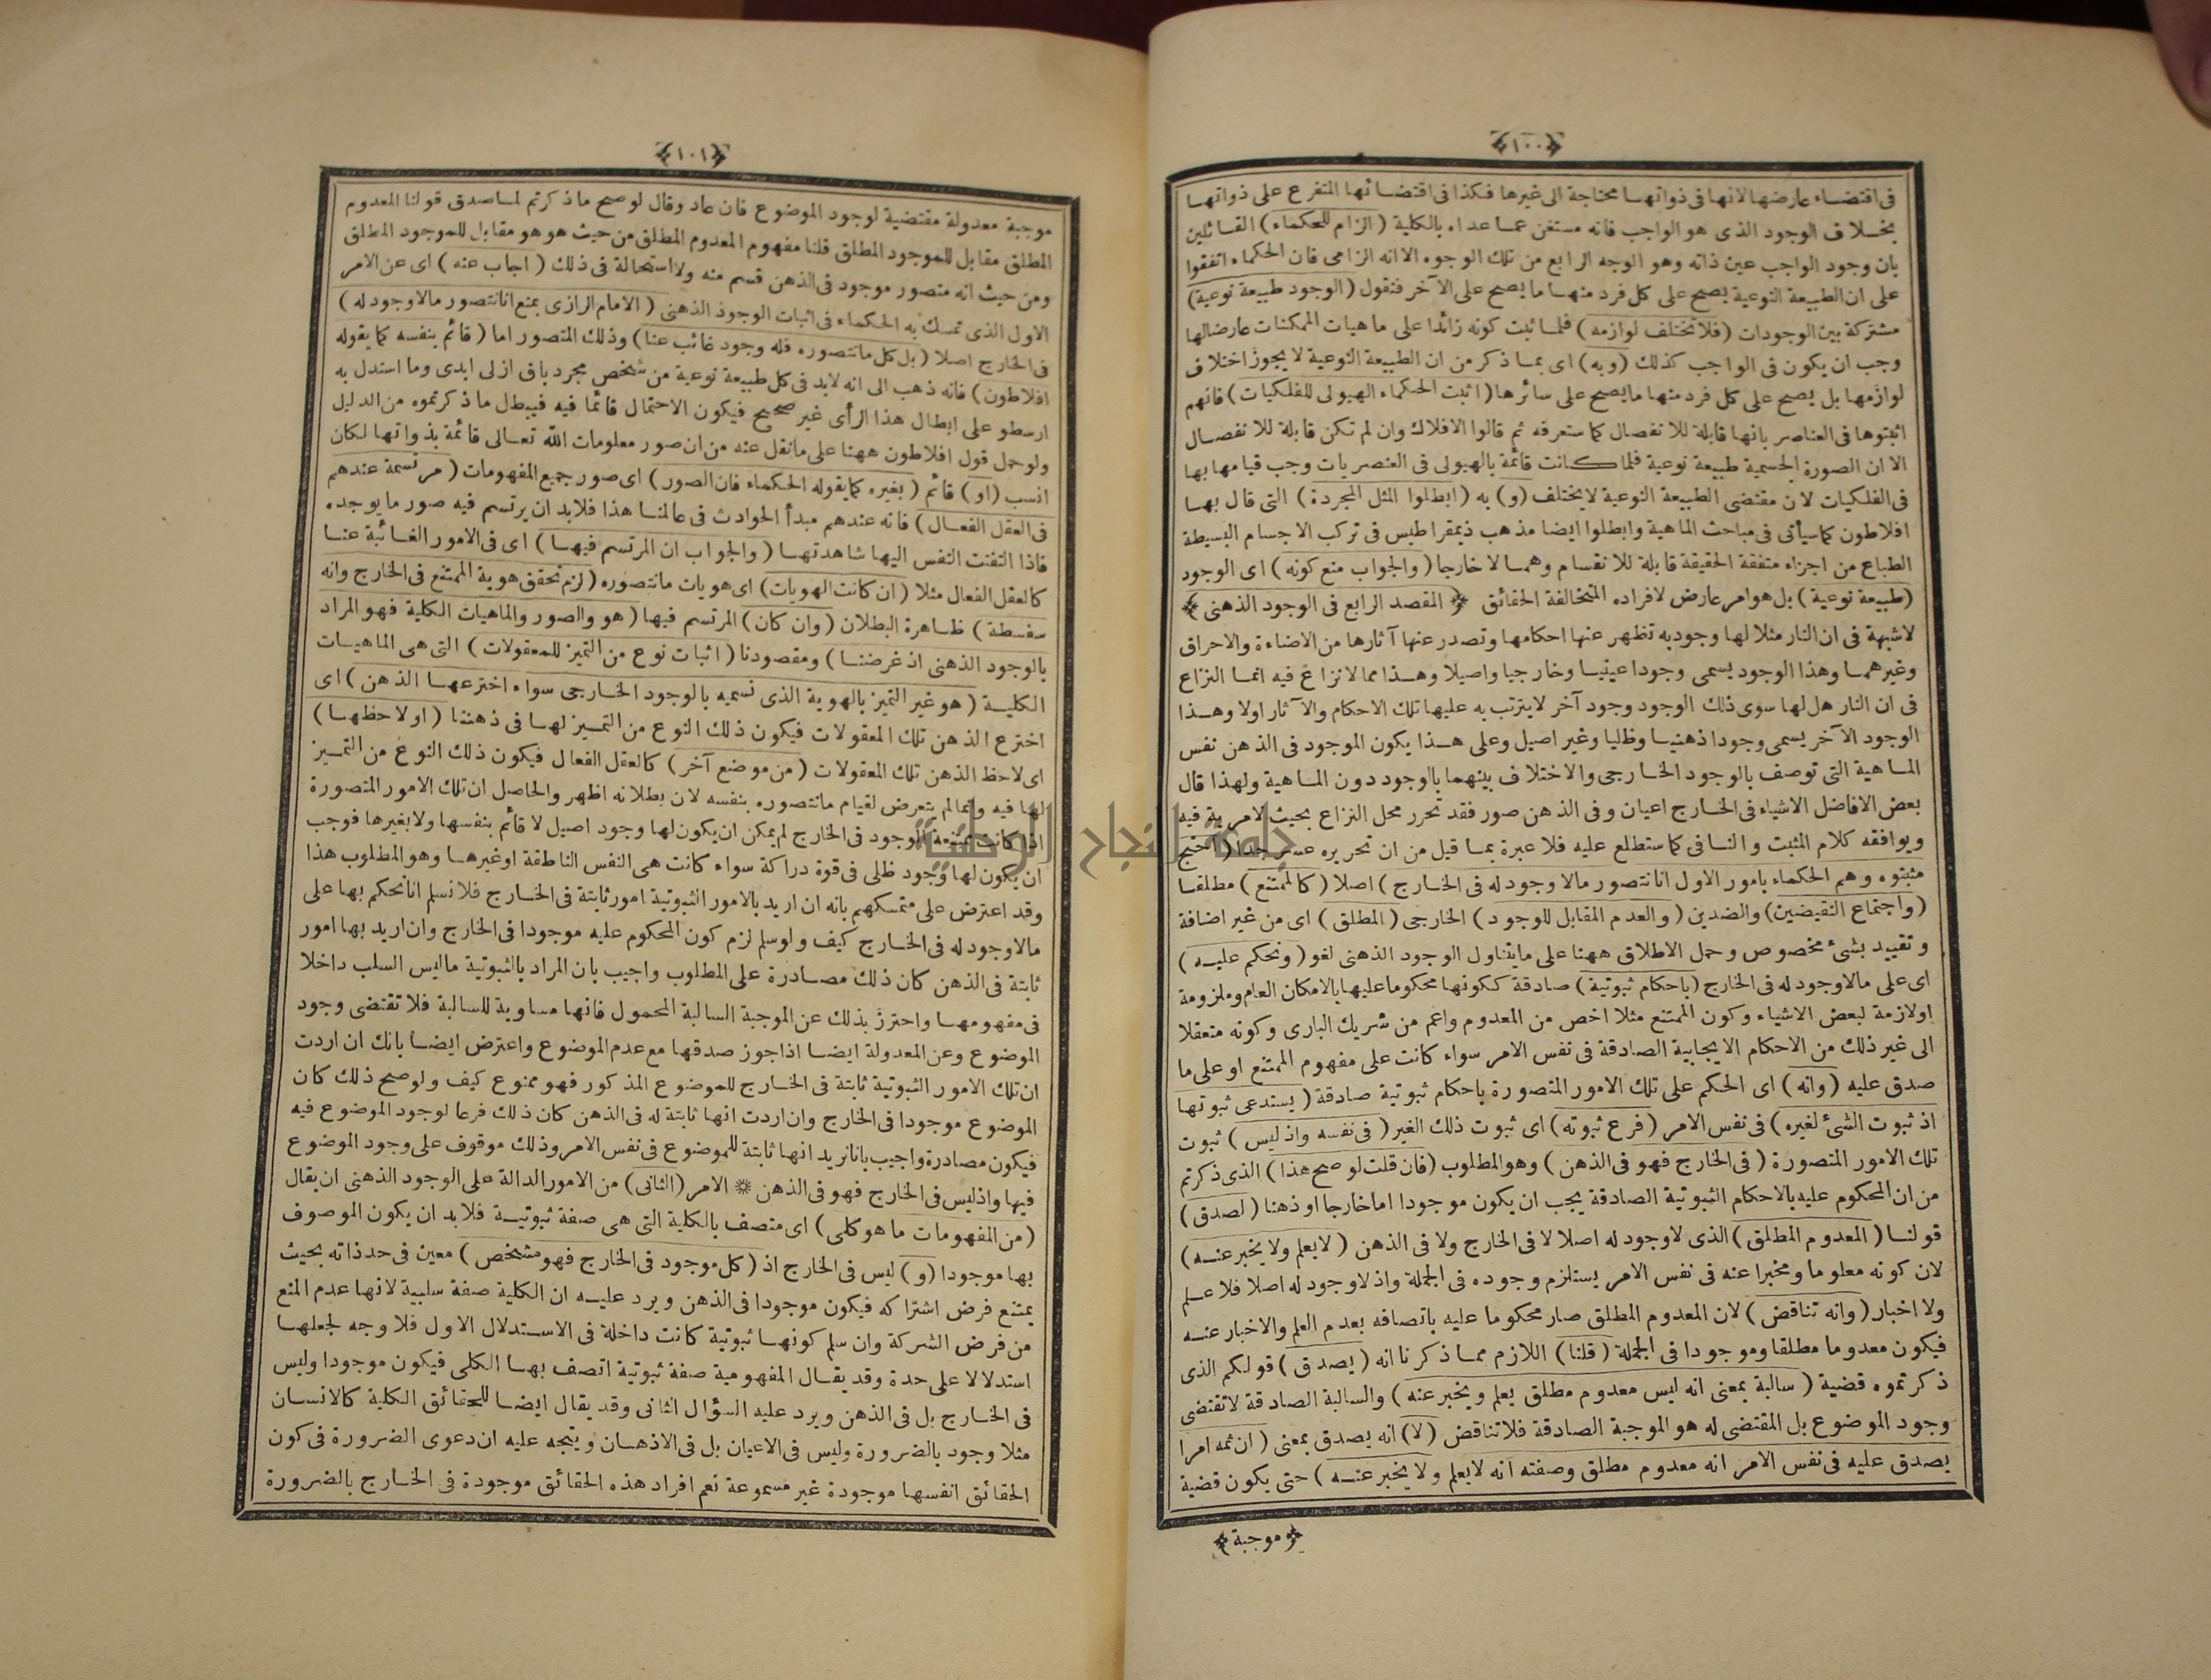 ﴿١٠٠﴾
فى اقتضاء عارضها لانها فى ذواتها محتاجة الى غيرها فكذا فى اقتضائها المتفرع على ذواتها
بخلاف الوجود الذى هو الواجب فانه مستغن عما عداه بالكلية (الزام للحكماء) القائلين
بان وجود الواجب عين ذاته وهو الوجه الرابع من تلك الوجوه الا انه الزامى فان الحكماء اتفقوا
على ان الطبيعة النوعية يصح على كل فرد منها ما يصح على الآخر فنقول (الوجود طبيعة نوعية)
مشتركة بين الوجودات (فلا تختلف لوازمه) فلما ثبت كونه زائدا على ماهيات الممكنات عارضا لها
وجب ان يكون فى الواجب كذلك (وبه) اى بما ذكر من ان الطبيعة النوعية لا يجوز اختلاف
لوازمها بل يصح على كل فرد منها ما يصح على سائرها (اثبت الحكماء الهيولى للفلكيات) فانهم
اثبتوها فى العناصر بانها قابلة للانفصال كما ستعرفه ثم قالوا الافلاك وان لم تكن قابلة للانفصال
الا ان الصورة الجسمية طبيعة نوعية فلما كانت قائمة بالهيولى فى العنصريات وجب قيامها بها
فى الفلكيات لان مقتضى الطبيعة النوعية لا يختلف (و) به (ابطلوا المثل المجردة) التى قال بها
افلاطون كما سيأتى فى مباحث الماهية وابطلوا ايضا مذهب ذيمقراطيس فى تركب الاجسام البسيطة
الطباع من اجزاء متفقة الحقيقة قابلة للانقسام وهما لا خارجا (والجواب منع كونه) اى الوجود
(طبيعة نوعية) بل هو امر عارض لافراده المتخالفة الحقائق ﴿ المقصد الرابع فى الوجود الذهنى ﴾
لا شبهة فى ان النار مثلا لها وجود به تظهر عنها احكامها وتصدر عنها آثارها من الاضاءة والاحراق
وغيرهما وهذا الوجود يسمى وجودا عينيا وخارجيا واصيلا وهذا مما لا نزاع فيه انما النزاع
فى ان النار هل لها سوى ذلك الوجود وجود آخر لا يترتب به عليها تلك الاحكام والآثار اولا وهذا
الوجود الآخر يسمى وجودا ذهنيا وظليا وغير اصيل وعلى هذا يكون الموجود فى الذهن نفس
الماهية التى توصف بالوجود الخارجى والاختلاف بينهما بالوجود دون الماهية ولهذا قال
بعض الافاضل الاشياء فى الخارج اعيان وفى الذهن صور فقد تحرر محل النزاع بحيث لا مرية فيه
ويوافقه كلام المثبت والنافى كما ستطلع عليه فلا عبرة بما قيل من ان تحريره عسر جدا (احتج
مثبتوه وهم الحكماء بامور الاول انا نتصور ما لا وجود له فى الخارج) اصلا (كالممتنع) مطلقا
(واجتماع النقيضين) والضدين (والعدم المقابل للوجود) الخارجى (المطلق) اى من غير اضافة
وتقييد بشئ مخصوص وحمل الاطلاق ههنا على ما يتناول الوجود الذهنى لغو (ونحكم عليه)
اى على ما لا وجود له فى الخارج (باحكام ثبوتية) صادقة ككونها محكوما عليها بالامكان العام وملزومة
اولازمة لبعض الاشياء وكون الممتنع مثلا اخص من المعدوم واعم من شريك البارى وكونه متعقلا
الى غير ذلك من الاحكام الايجابية الصادقة فى نفس الامر سواء كانت على مفهوم الممتنع او على ما
صدق عليه (وانه) اى الحكم على تلك الامور المتصورة باحكام ثبوتية صادقة (يستدعى ثبوتها
اذ ثبوت الشئ لغيره) فى نفس الامر (فرع ثبوته) اى ثبوت ذلك الغير (فى نفسه واذ ليس) ثبوت
تلك الامور المتصورة (فى الخارج فهو فى الذهن) وهو المطلوب (فان قلت لو صح هذا) الذى ذكرتم
من ان المحكوم عليه بالاحكام الثبوتية الصادقة يجب ان يكون موجودا اما خارجا او ذهنا (لصدق)
قولنا (المعدوم المطلق) الذى لا وجود له اصلا لا فى الخارج ولا فى الذهن (لا يعلم ولا يخبر عنه)
لان كونه معلوما ومخبرا عنه فى نفس الامر يستلزم وجوده فى الجملة واذ لا وجود له اصلا فلا علم
ولا اخبار (وانه تناقض) لان المعدوم المطلق صار محكوما عليه باتصافه بعدم العلم والاخبار عنه
فيكون معدوما مطلقا وموجودا فى الجملة (قلنا) اللازم مما ذكرنا انه (يصدق) قولكم الذى
ذكرتموه قضية (سالبة بمعنى انه ليس معدوم مطلق يعلم ويخبر عنه) والسالبة الصادقة لا تقتضى
وجود الموضوع بل المقتضى له هو الموجبة الصادقة فلا تناقض (لا) انه يصدق بمعنى (ان ثمه امرا
يصدق عليه فى نفس الامر انه معدوم مطلق وصفته انه لا يعلم ولا يخبر عنه) حتى يكون قضية
﴿موجبة﴾
﴿١٠١﴾
موجبة معدولة مقتضية لوجود الموضوع فان عاد وقال لو صح ما ذكرتم لما صدق قولنا المعدوم
المطلق مقابل للموجود المطلق قلنا مفهوم المعدوم المطلق من حيث هو هو مقابل للموجود المطلق
ومن حيث انه متصور موجود فى الذهن قسم منه ولا استحالة فى ذلك (اجاب عنه) اى عن الامر
الاول الذى تمسك به الحكماء فى اثبات الوجود الذهنى (الامام الرازى بمنع انا نتصور ما لا وجود له)
فى الخارج اصلا (بل كل ما نتصوره فله وجود غائب عنا) وذلك المتصور اما (قائم بنفسه كما يقوله
افلاطون) فانه ذهب الى انه لابد فى كل طبيعة نوعية من شخص مجرد باق ازلى ابدى وما استدل به
ارسطو على ابطال هذا الرأى غير صحيح فيكون الاحتمال قائما فيه فيبطل ما ذكرتموه من الدليل
ولو حمل قول افلاطون ههنا على ما نقل عنه من ان صور معلومات الله تعالى قائمة بذواتها لكان
انسب (او) قائم (بغيره كما يقوله الحكماء فان الصور) اى صور جميع المفهومات (مرتسمة عندهم
فى العقل الفعال) فانه عندهم مبدأ الحوادث فى عالمنا هذا فلابد ان يرتسم فيه صور ما يوجده
فاذا التفت النفس اليها شاهدتها (والجواب ان المرتسم فيها) اى فى الامور الغائبة عنا
كالعقل الفعال مثلا (ان كانت الهويات) اى هويات ما نتصوره (لزم تحقق هوية الممتنع فى الخارج وانه
سفسطة) ظاهرة البطلان (وان كان) المرتسم فيها (هو والصور والماهيات الكلية فهو المراد
بالوجود الذهنى اذ غرضنا) ومقصودنا (اثبات نوع من التميز للمعقولات) التى هى الماهيات
الكلية (هو غير التميز بالهوية الذى نسميه بالوجود الخارجى سواء اخترعها الذهن) اى
اخترع الذهن تلك المعقولات فيكون ذلك النوع من التميز لها فى ذهننا (او لاحظها)
اى لاحظ الذهن تلك المعقولات (من موضع آخر) كالعقل الفعال فيكون ذلك النوع من التميز
لها فيه وانما لم يتعرض لقيام ما نتصوره بنفسه لان بطلانه اظهر والحاصل ان تلك الامور المتصورة
اذا كانت ممتنعة الوجود فى الخارج لم يمكن ان يكون لها وجود اصيل لا قائم بنفسها ولا بغيرها فوجب
ان يكون لها وجود ظلى فى قوة دراكة سواء كانت هى النفس الناطقة او غيرها وهو المطلوب هذا
وقد اعترض على متمسكهم بانه ان اريد بالامور الثبوتية امور ثابتة فى الخارج فلا نسلم انا نحكم بها على
مالا وجود له فى الخارج كيف ولو سلم لزم كون المحكوم عليه موجودا فى الخارج وان اريد بها امور
ثابتة فى الذهن كان ذلك مصادرة على المطلوب واجيب بان المراد بالثبوتية ما ليس السلب داخلا
فى مفهومها واحترز بذلك عن الموجبة السالبة المحمول فانها مساوية للسالبة فلا تقتضى وجود
الموضوع وعن المعدولة ايضا اذا جوز صدقها مع عدم الموضوع واعترض ايضا بانك ان اردت
ان تلك الامور الثبوتية ثابتة فى الخارج للموضوع المذكور فهو ممنوع كيف ولو صح ذلك كان
الموضوع موجودا فى الخارج وان اردت انها ثابتة له فى الذهن كان ذلك فرعا لوجود الموضوع فيه
فيكون مصادرة واجيب بانا نريد انها ثابتة للموضوع فى نفس الامر وذلك موقوف على وجود الموضوع
فيها واذ ليس فى الخارج فهو فى الذهن ۞ الامر (الثانى) من الامور الدالة على الوجود الذهنى ان يقال
(من المفهومات ما هو كلى) اى متصف بالكلية التى هى صفة ثبوتية فلابد ان يكون الموصوف
بها موجودا (و) ليس فى الخارج اذ (كل موجود فى الخارج فهو مشخص) معين فى حد ذاته بحيث
يمتنع فرض اشتراكه فيكون موجودا فى الذهن ويرد عليه ان الكلية صفة سلبية لانها عدم المنع
من فرض الشركة وان سلم كونها ثبوتية كانت داخلة فى الاستدلال الاول فلا وجه لجعلها
استدلالا على حدة وقد يقال المفهومية صفة ثبوتية اتصف بها الكلى فيكون موجودا وليس
فى الخارج بل فى الذهن ويرد عليه السؤال الثانى وقد يقال ايضا للحقائق الكلية كالانسان
مثلا وجود بالضرورة وليس فى الاعيان بل فى الاذهان ويتجه عليه ان دعوى الضرورة فى كون
الحقائق انفسها موجودة غير مسموعة نعم افراد هذه الحقائق موجودة فى الخارج بالضرورة
جامعة النجاح الوطنية